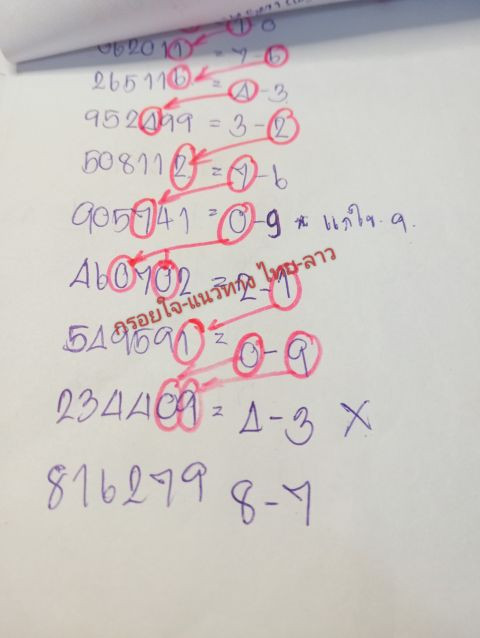 1-0
062011 = 7-6
265116 = 4-3
952499 = 3-2
508112 = 7-6
905741 = 0-9 * แก้ไข 9.
460702 = 2-1
กรอยใจ-แนวทาง ไทย-ลาว
549591 = 0-9
234409 = 4-3 X
816279 8-7